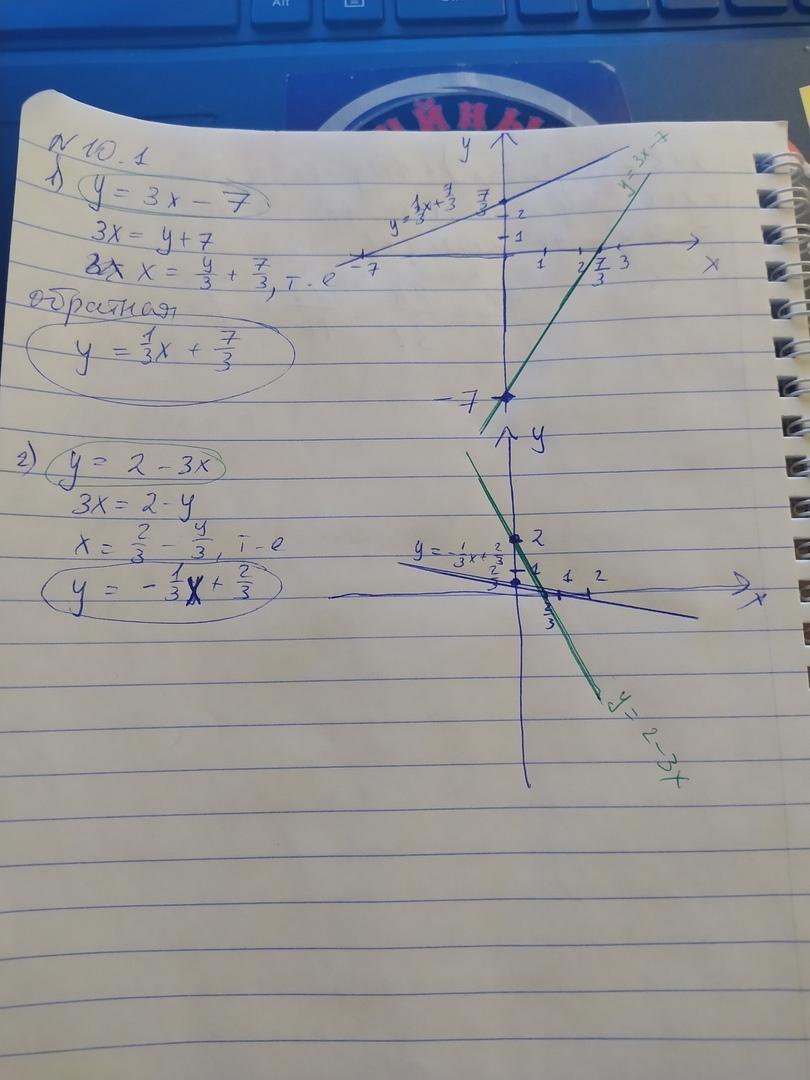 Alt
Ctrl
ЙНЫ
N 10.1
1) y = 3x - 7
3x = y + 7
x = y/3 + 7/3, т.е
обратная
y = 1/3x + 7/3
y
y = 1/3x + 7/3
7/3
2
1
-7
1
2
7/3
3
x
-7
y = 3x - 7
2) y = 2 - 3x
3x = 2 - y
x = 2/3 - y/3, т-е
y = -1/3x + 2/3
y
2
y = -1/3x + 2/3
2/3
1
1
2
2/3
x
y = 2 - 3x